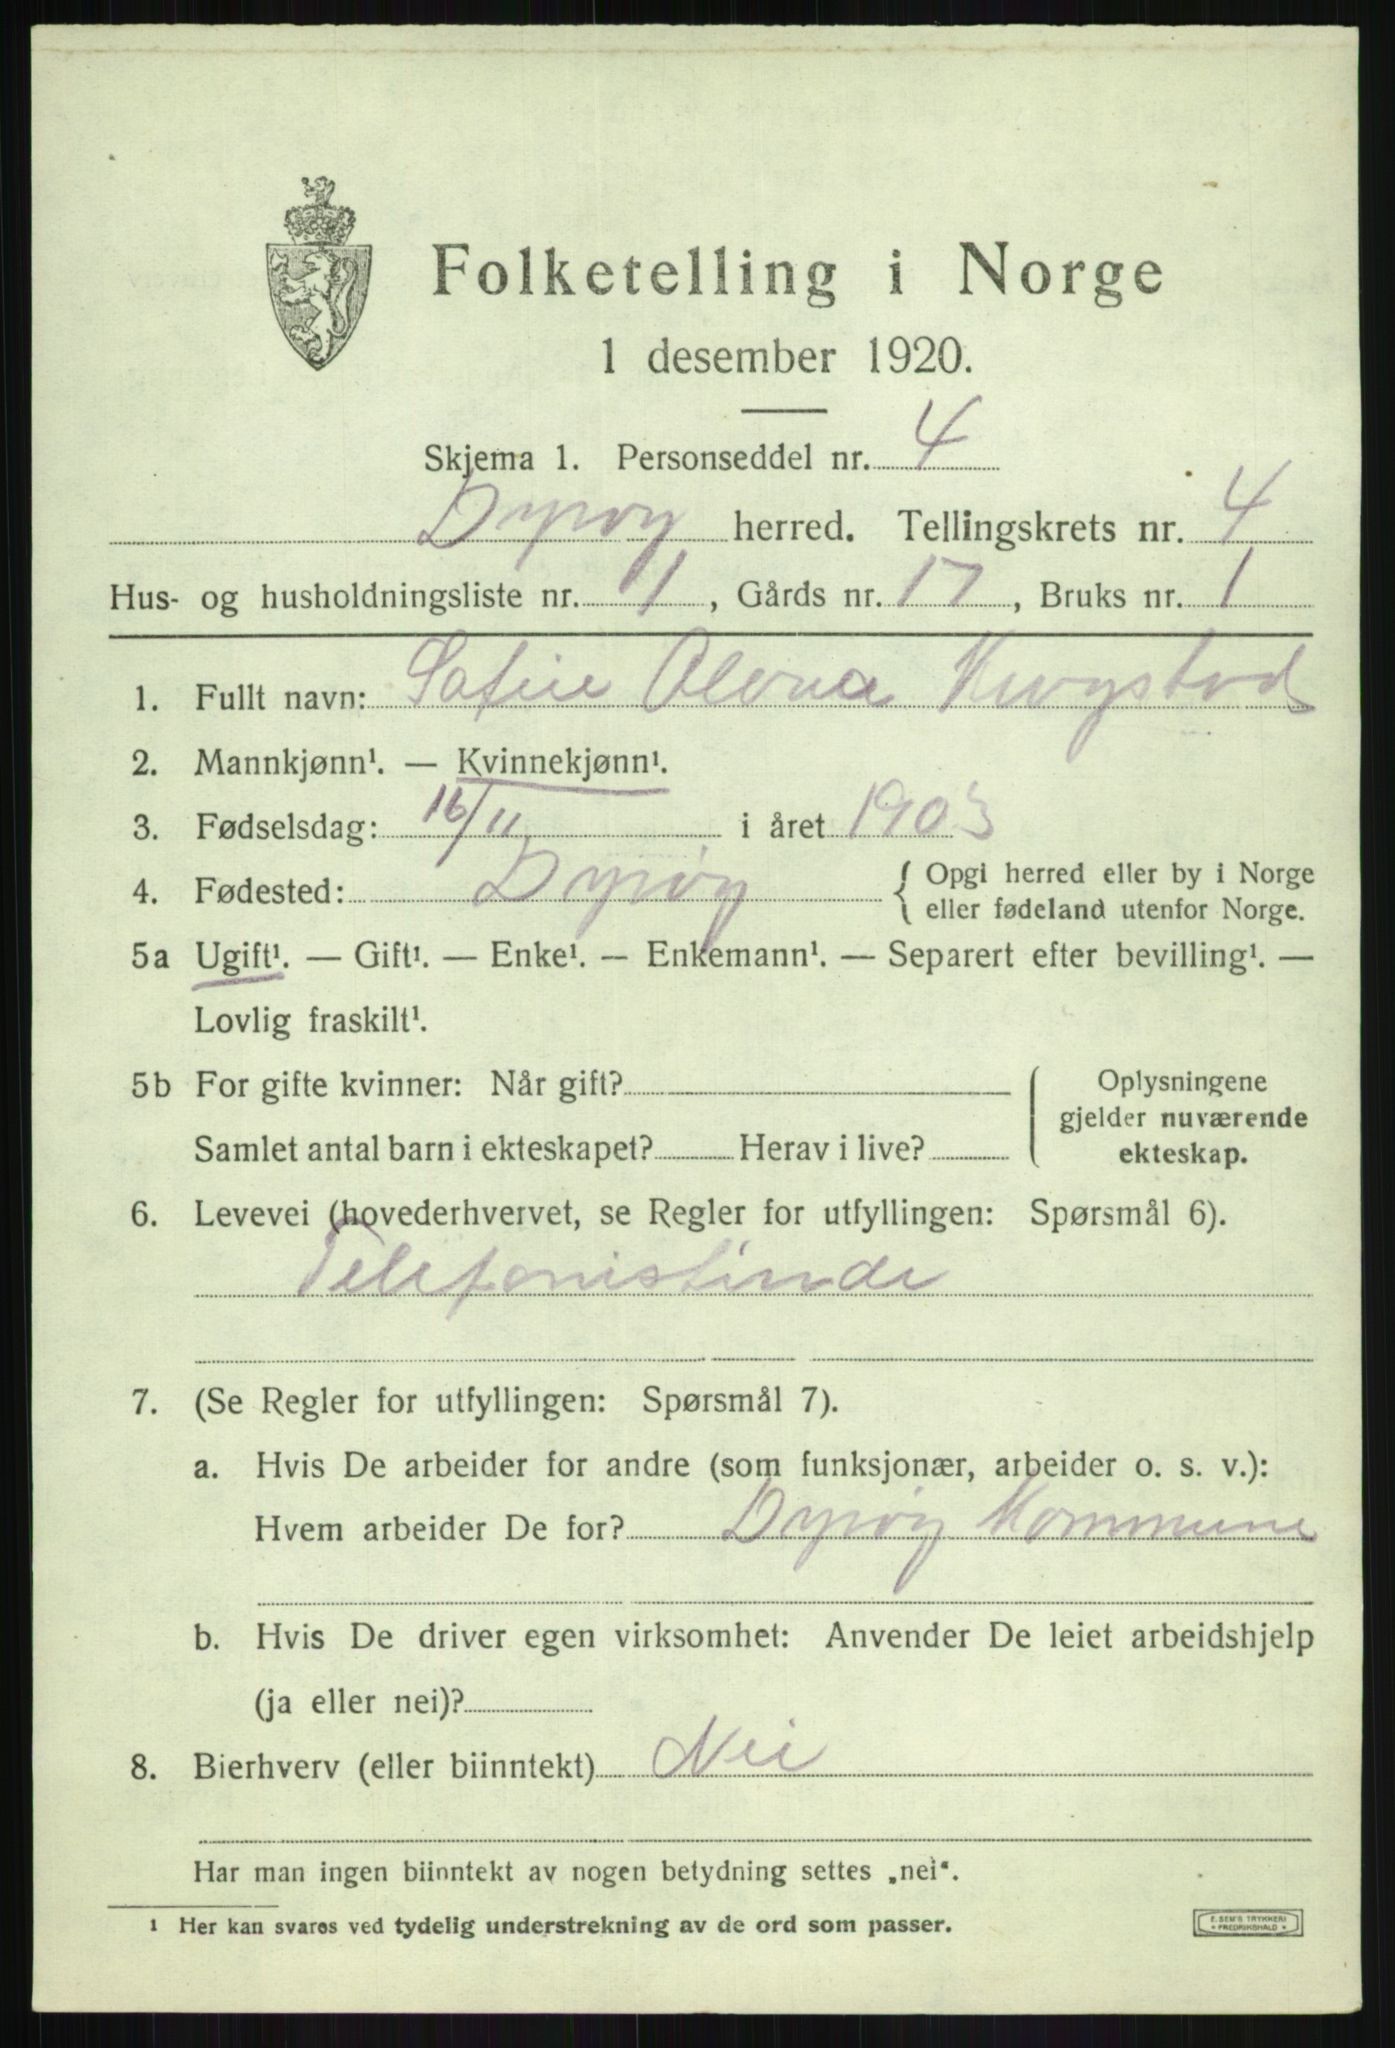 Folketelling i Norge
1 desember 1920.
Skjema 1. Personseddel nr. 4
Dyrøy herred. Tellingskrets nr. 4
Hus- og husholdningsliste nr. 1, Gårds nr. 17, Bruks nr. 1
1. Fullt navn: Sofie
2. Mannkjønn¹. — Kvinnekjønn¹.
3. Fødselsdag: 16/11 i året 1903
4. Fødested: Dyrøy { Opgi herred eller by i Norge
eller fødeland utenfor Norge.
5a Ugift¹. — Gift¹. — Enke¹. — Enkemann¹. — Separert efter bevilling¹. —
Lovlig fraskilt¹.
5b For gifte kvinner: Når gift?
Samlet antal barn i ekteskapet? Herav i live?
Oplysningene
gjelder nuværende
ekteskap.
6. Levevei (hovederhvervet, se Regler for utfyllingen: Spørsmål 6).
Telefonistinde
7. (Se Regler for utfyllingen: Spørsmål 7).
a. Hvis De arbeider for andre (som funksjonær, arbeider o. s. v.):
Hvem arbeider De for? Dyrøy Kommune
b. Hvis De driver egen virksomhet: Anvender De leiet arbeidshjelp
(ja eller nei)?
8. Bierhverv (eller biinntekt) Nei
Har man ingen biinntekt av nogen betydning settes „nei“.
¹ Her kan svares ved tydelig understrekning av de ord som passer.
E. SEM'S TRYKKERI
FREDRIKSHALD